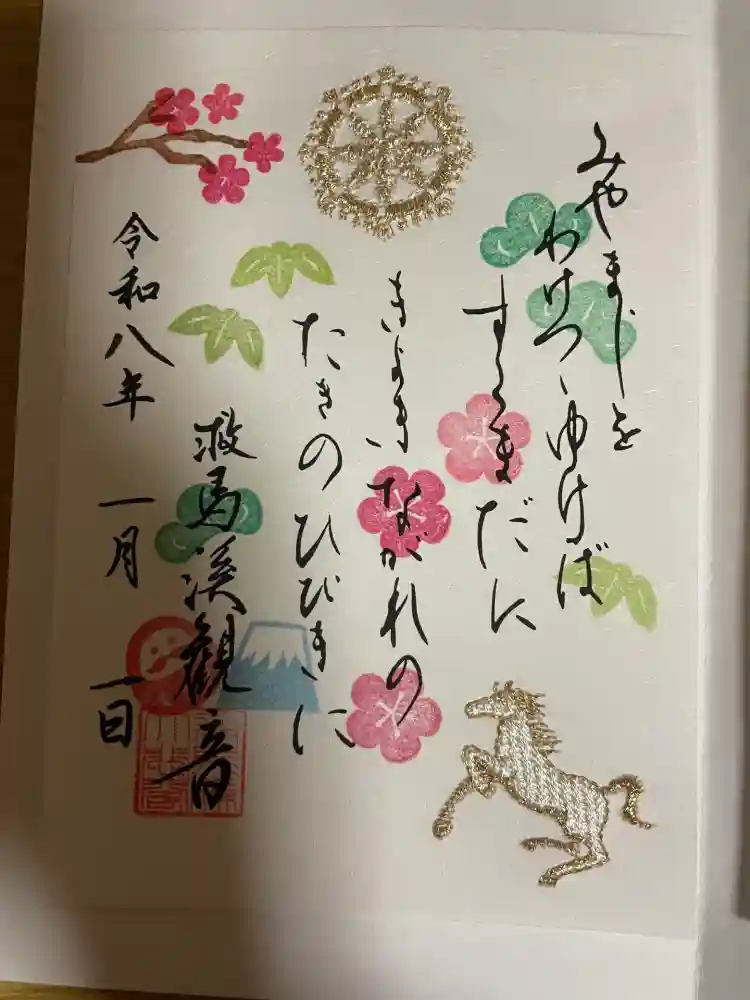 みやまじを
わけつゝゆけば
すくまだに
きよきながれの
たきのひびきに
救馬渓観音
令和八年 一月 一日